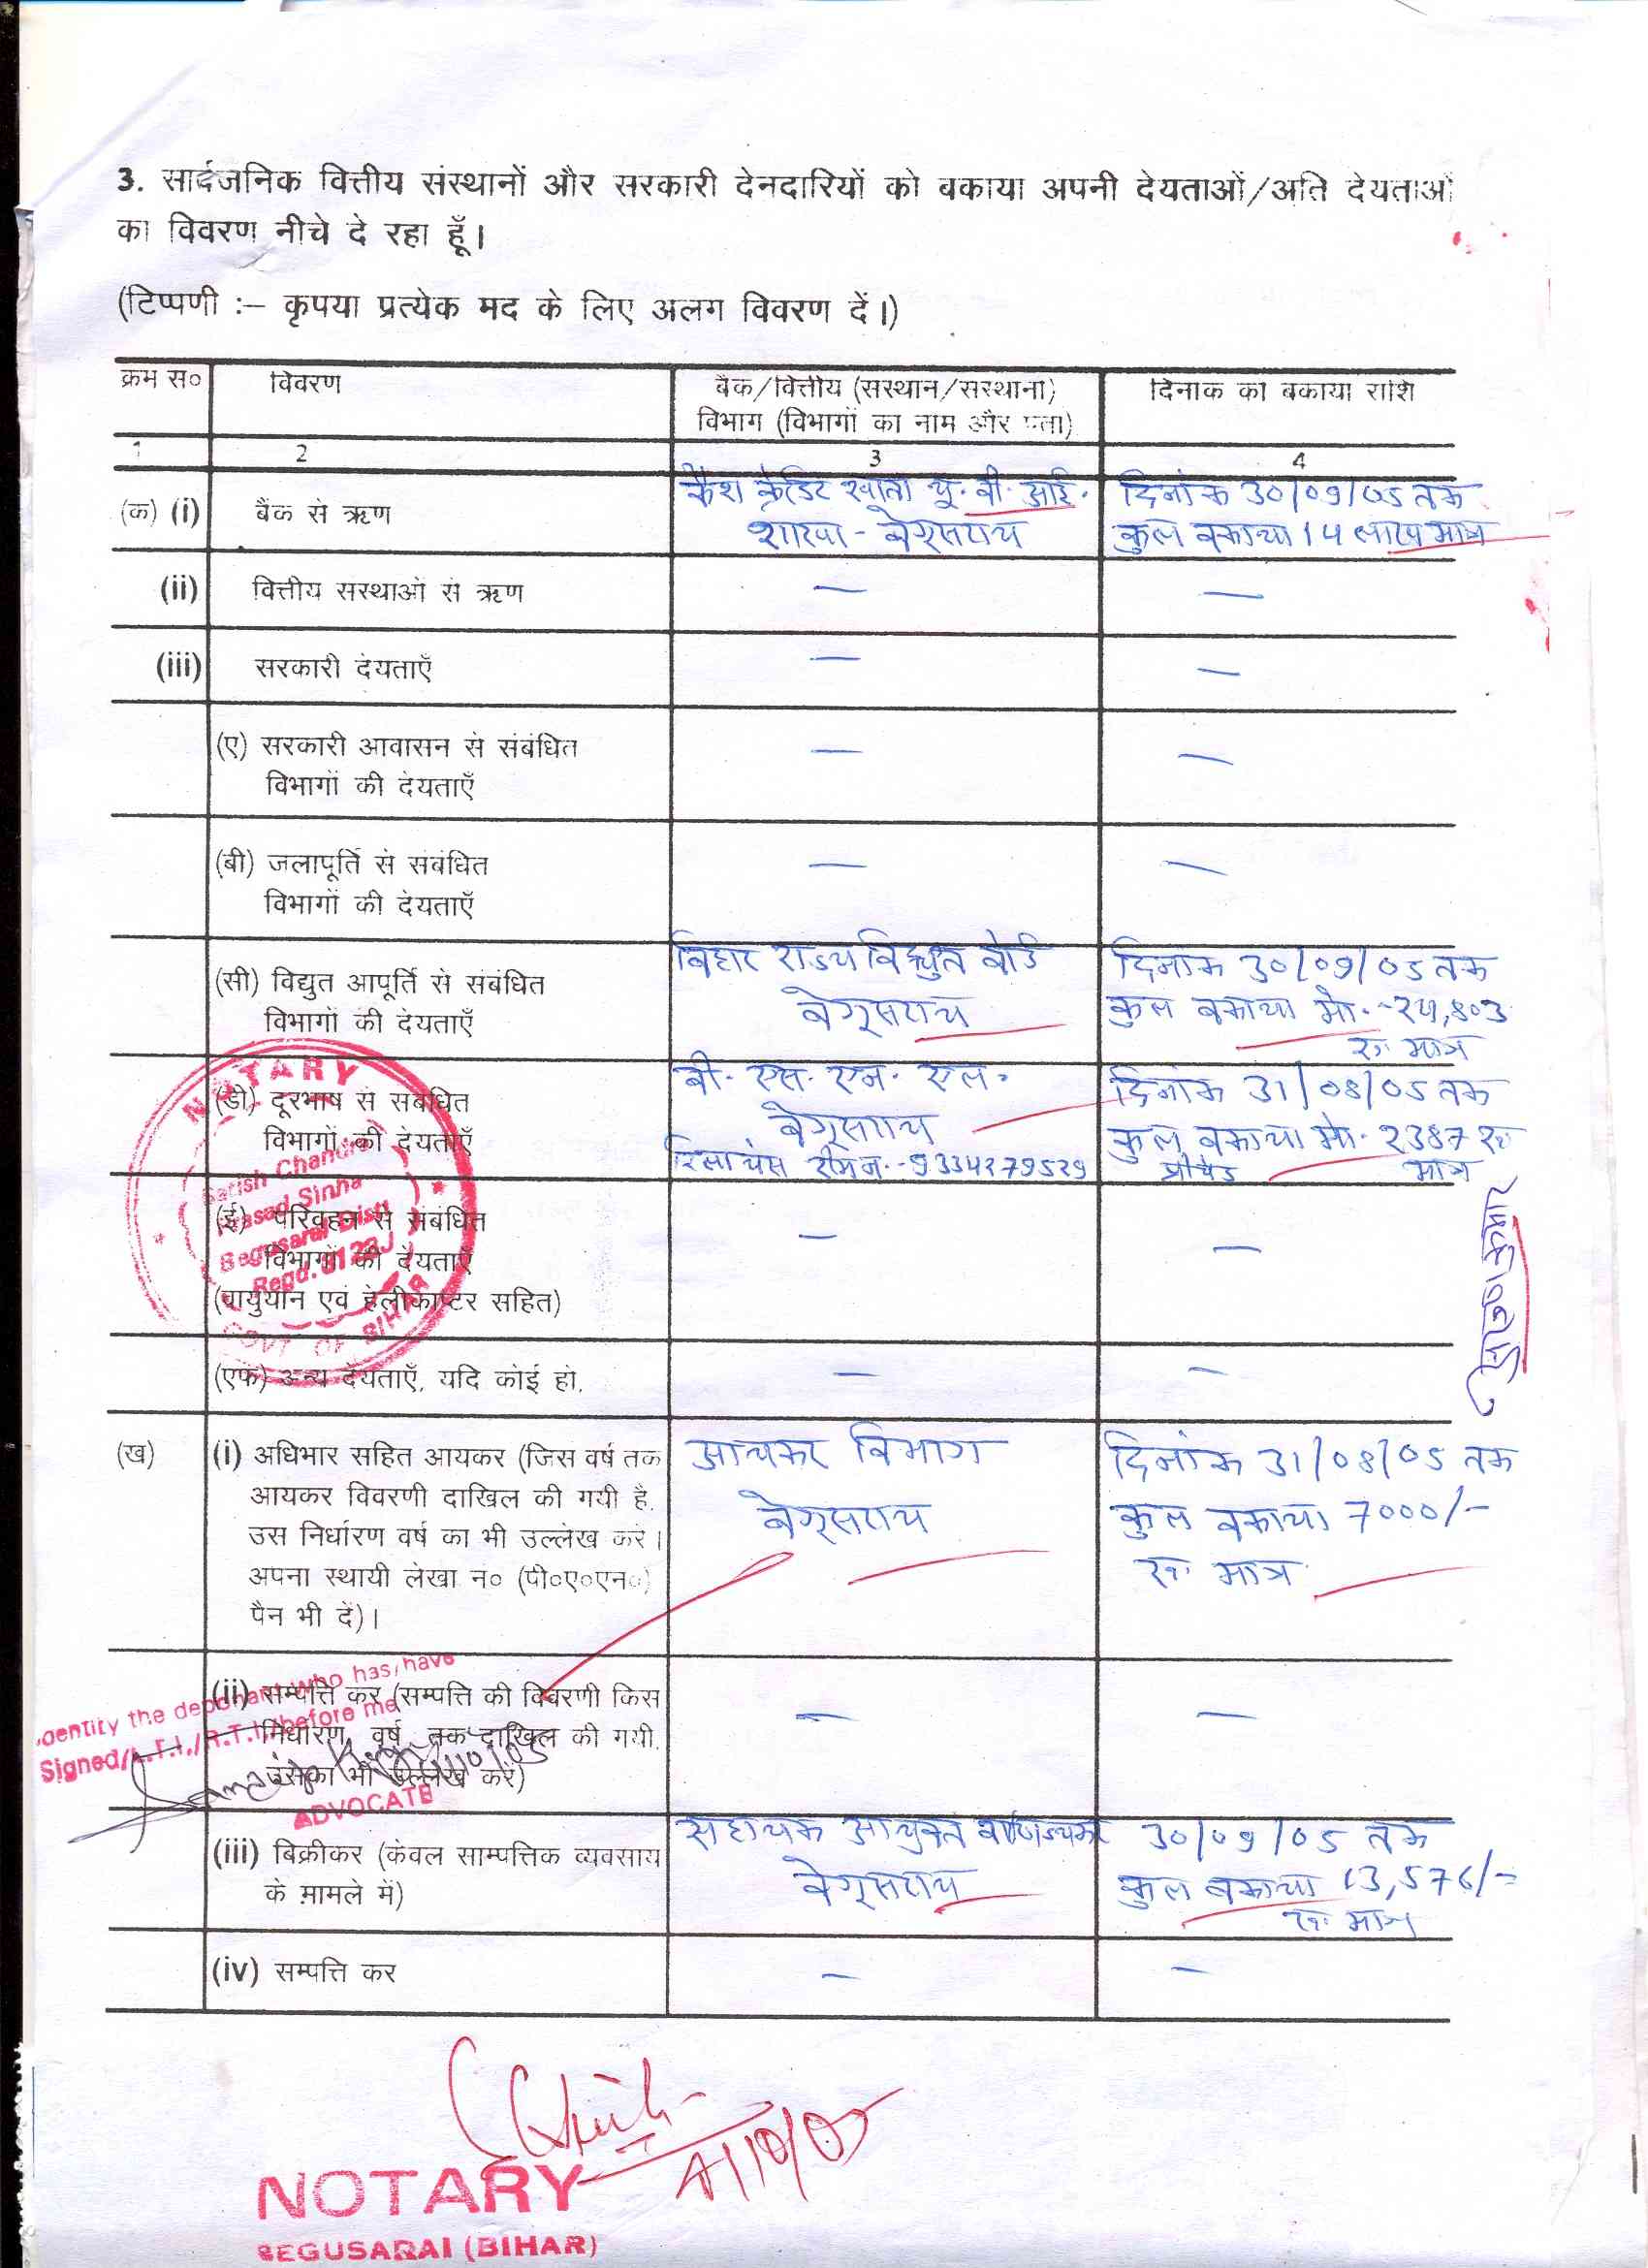 3. सार्वजनिक वित्तीय संस्थानों और सरकारी देनदारियों को बकाया अपनी देयताओं/अति देयताओं
का विवरण नीचे दे रहा हूँ।
(टिप्पणी :– कृपया प्रत्येक मद के लिए अलग विवरण दें।)
क्रम स० विवरण बैंक/वित्तीय (संस्थान/संस्थानों) दिनांक को बकाया राशि
विभाग (विभागों का नाम और पता)
1 2 3 4
(क) (i) बैंक से ऋण कैश क्रेडिट खाता यू. बी. आई. दिनांक 30/09/05 तक
शाखा - बेगूसराय कुल बकाया 14 लाख मात्र
(ii) वित्तीय संस्थाओं से ऋण — —
(iii) सरकारी देयताएँ — —
(ए) सरकारी आवासन से संबंधित — —
विभागों की देयताएँ
(बी) जलापूर्ति से संबंधित — —
विभागों की देयताएँ
(सी) विद्युत आपूर्ति से संबंधित बिहार राज्य विद्युत बोर्ड दिनांक 30/09/05 तक
विभागों की देयताएँ बेगूसराय कुल बकाया मो.
रु. मात्र
(डी) दूरभाष से संबंधित बी. एस. एन. एल. दिनांक 31/08/05 तक
विभागों की देयताएँ बेगूसराय कुल बकाया मो. 2387 रु.
रिलायंस मात्र
(ई) परिवहन से संबंधित — —
विभागों की देयताएँ
(वायुयान एवं हेलीकाप्टर सहित)
(एफ) अन्य देयताएँ, यदि कोई हो. — —
(ख) (i) अधिभार सहित आयकर (जिस वर्ष तक आयकर विभाग दिनांक 31/08/05 तक
आयकर विवरणी दाखिल की गयी है, बेगूसराय कुल बकाया 7000/-
उस निर्धारण वर्ष का भी उल्लेख करें। रु. मात्र
अपना स्थायी लेखा न० (पी०ए०एन०)
पैन भी दें)।
(ii) सम्पत्ति कर (सम्पत्ति की विवरणी किस — —
निर्धारण वर्ष तक दाखिल की गयी,
उसका भी उल्लेख करें)
(iii) बिक्रीकर (केवल साम्पत्तिक व्यवसाय सहायक आयुक्त वाणिज्यकर 30/09/05 तक
के मामले में) बेगूसराय कुल बकाया 13,576/-
रु. मात्र
(iv) सम्पत्ति कर — —
NOTARY
Satish Chandra
Prasad Sinha
Begusarai Distt
Regd.
GOVT OF BIHAR
Identity the deponent who has/have
Signed/L.T.I./R.T.I. before me
ADVOCATE
4/10/05
NOTARY
BEGUSARAI (BIHAR)